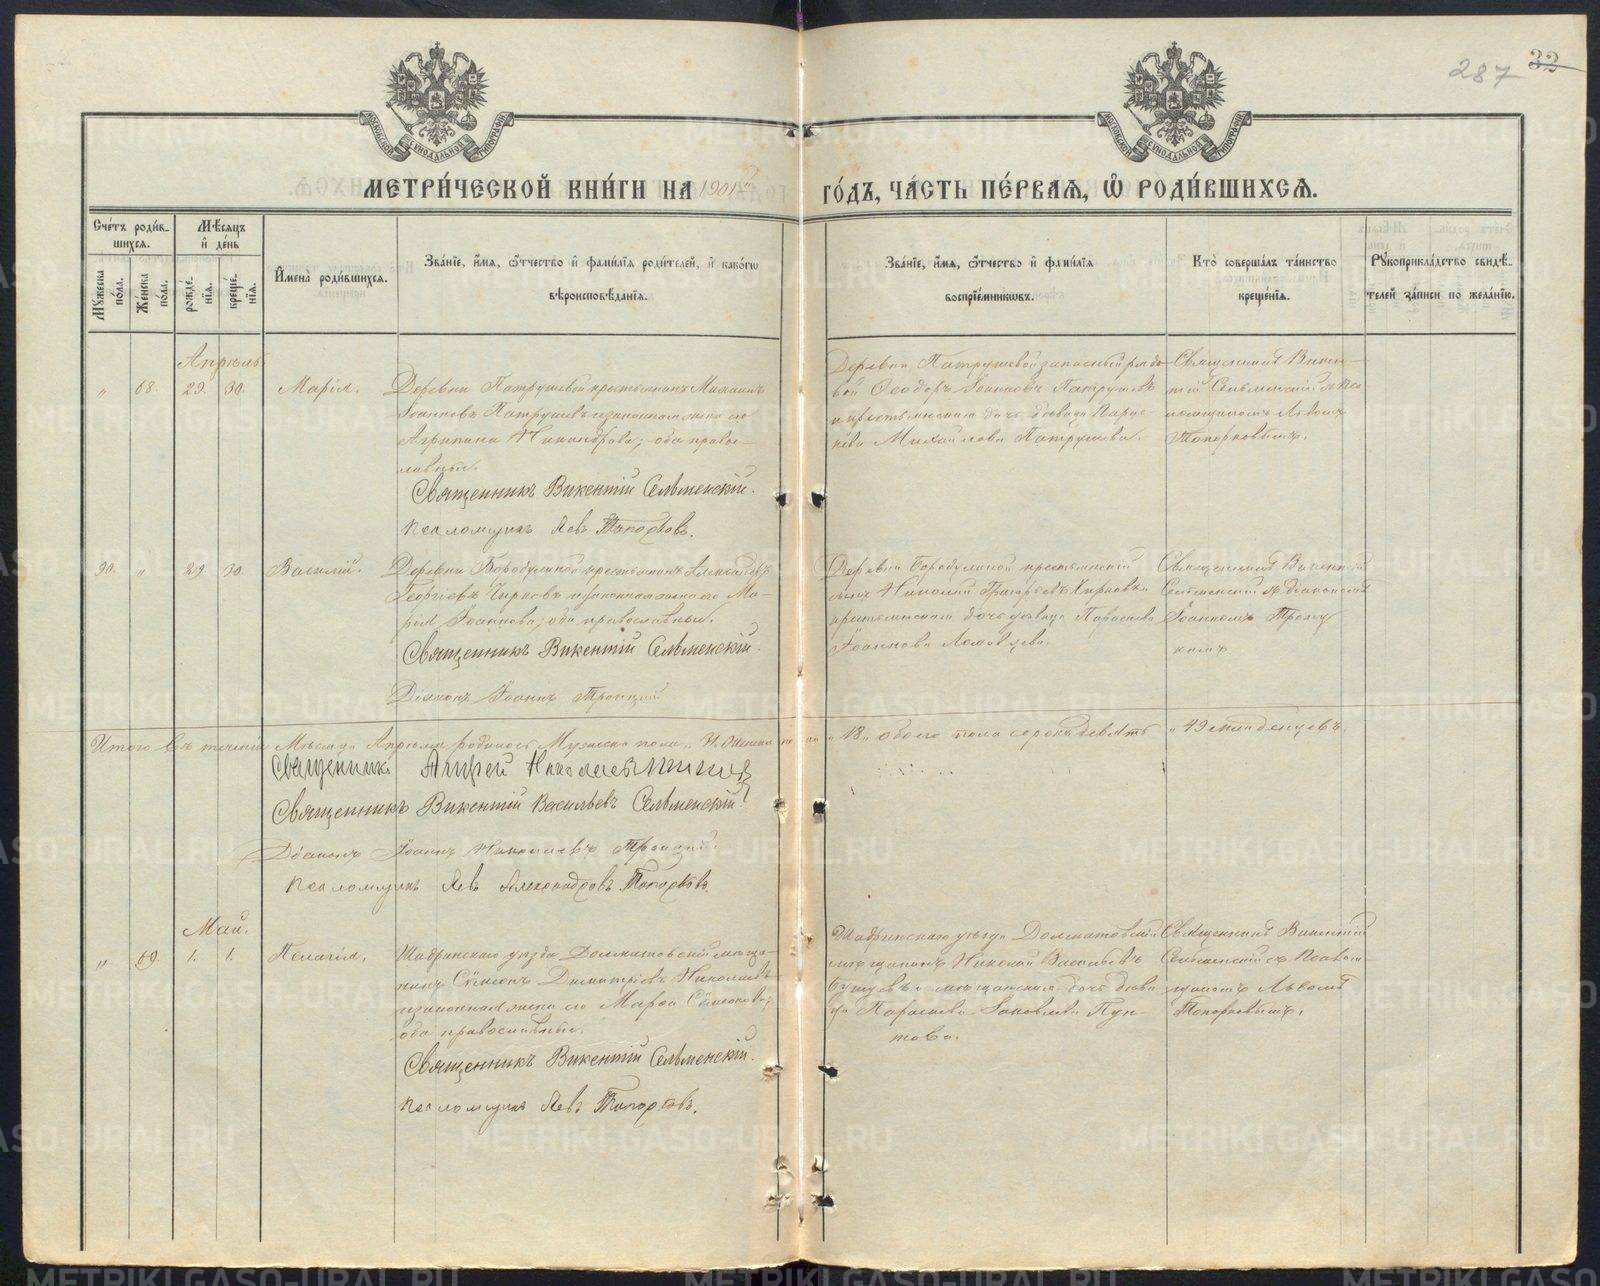 287 32
МОСКОВСКОЙ СѴНОДАЛЬНОЙ ТИПОГРАФІИ
МОСКОВСКОЙ СѴНОДАЛЬНОЙ ТИПОГРАФІИ
МЕТРИ́ЧЕСКОЙ КНИ́ГИ НА 1901 ГО́ДЪ, ЧА́СТЬ ПЕ́РВАѦ, Ѿ РОДИ́ВШИХСѦ.
Сче́тъ роди́в-
шихсѧ.
Мꙋ́жеска по́ла.
Же́нска по́ла.
Мѣ́сѧцъ и҆ де́нь
рожде́-нїѧ.
креще́-нїѧ.
И҆мена̀ роди́вшихсѧ.
Зва́нїе, и҆́мѧ, ѻ҆́тчество и҆ фами́лїѧ роди́телей, и҆ како́гѡ
вѣроисповѣ́данїѧ.
Зва́нїе, и҆́мѧ, ѻ҆́тчество и҆ фами́лїѧ
воспрїе́мникѡвъ.
Кто̀ соверша́лъ та́инство
креще́нїѧ.
Рꙋкоприкла́дство свидѣ́-
телей за́писи по жела́нїю.
Апрѣль
„ 68. 29. 30. Марія.
Деревни Патрушевой крестьянинъ Михаилъ
Іоанновъ Патрушевъ и законная жена его
Агрипина Никандрова; оба право-
славные.
Священникъ Викентій Сельменскій.
Псаломщикъ Левъ Топорковъ.
Деревни Патрушевой запасный рядо-
вой Ѳеодоръ Іоанновъ Патрушевъ
и крестьянская дочь дѣвица Парас-
кева Михайлова Патрушева.
Священникъ Викен-
тій Сельменскій съ Пса-
ломщикомъ Львомъ
Топорковымъ.
„ 29. 30. Василій.
Деревни Бородулиной крестьянинъ Александръ
Георгіевъ Чирковъ и законная жена его Ма-
рія Іоаннова; оба православные.
Священникъ Викентій Сельменскій.
Діаконъ Іоаннъ Троицкій
Деревни Бородулиной крестьянскій
сынъ Николай Григорьевъ Чирковъ и
крестьянская дочь дѣвица Параскева
Іоаннова
Священникъ Викентій
Сельменскій съ діакономъ
Іоанномъ Троиц-
кимъ
Итого въ теченіи Мѣсяца Апрѣля родилось Мужеска пола „ Женска пола „ 18 „ обоего пола сорокъ девять „ 49 младенцевъ.
Священникъ Андрей Николаевъ
Священникъ Викентій Васильевъ Сельменскій.
Діаконъ Іоаннъ Николаевъ Троицкій.
Псаломщикъ Левъ Александровъ Топорковъ.
Май.
„ 69. 1. 1. Пелагія.
Шадринскаго уѣзда Долматовскій мѣща-
нинъ Сѵмеонъ Димитріевъ Николаевъ
и законная жена его Марѳа Сѵмеонова;
оба православные.
Священникъ Викентій Сельменскій.
Псаломщикъ Левъ Топорковъ.
Шадринскаго уѣзда Долматовскій
мѣщанинъ Николай Васильевъ
и мѣщанская дочь дѣви-
ца Параскева Іаковлева Пун-
това.
Священникъ Викентій
Сельменскій съ Псалом-
щикомъ Львомъ
Топорковымъ.
METRIKI.GASO-URAL.RU